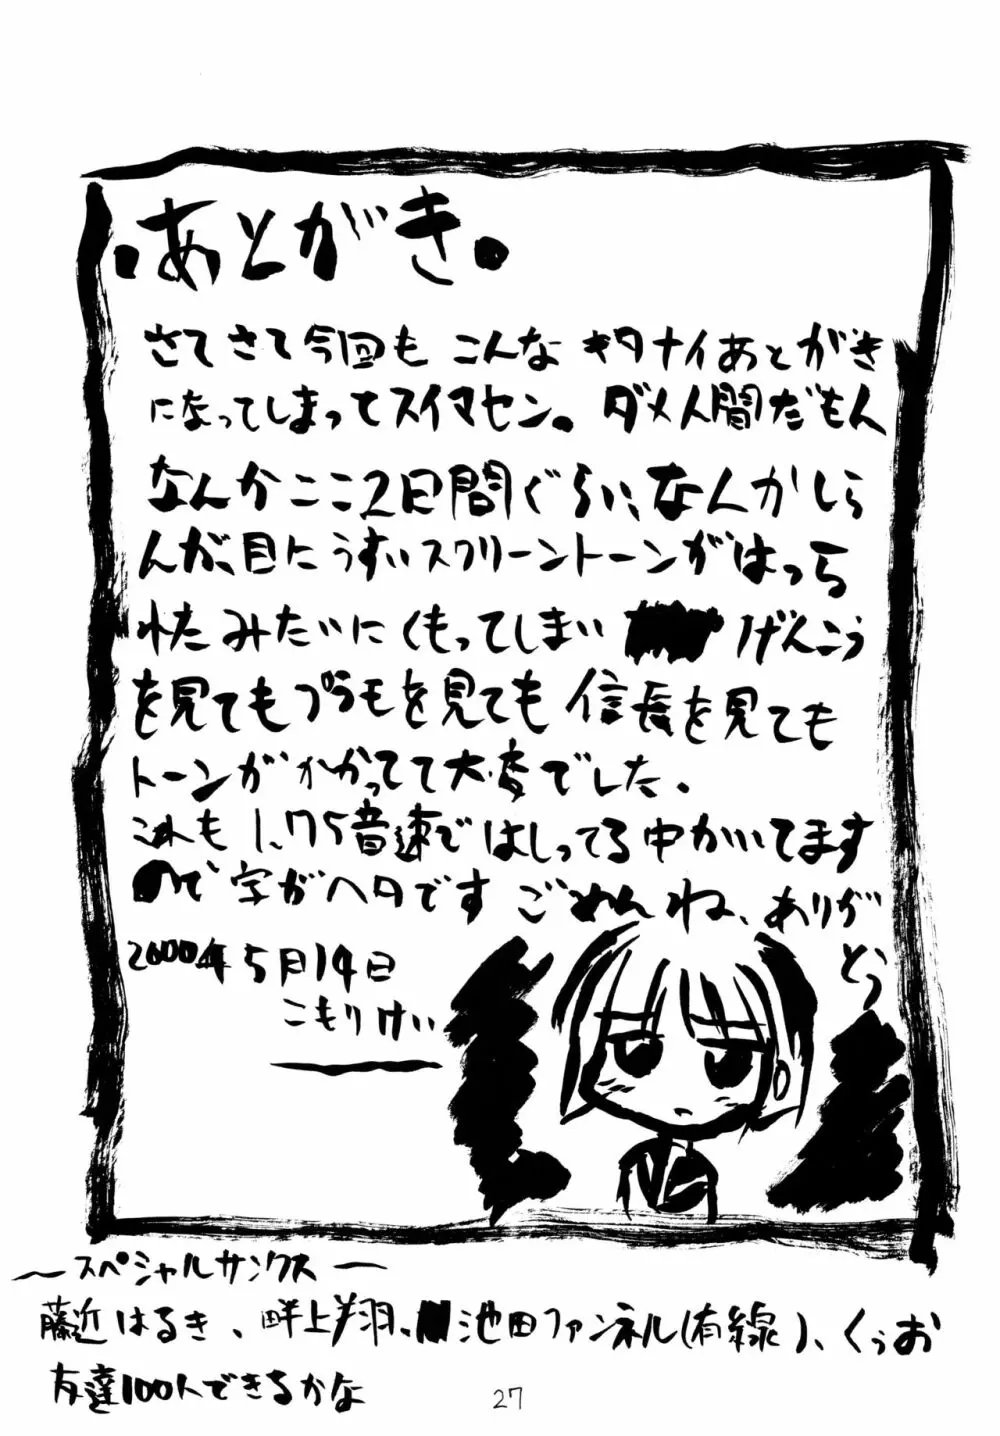 ・あとがき。
さてさて今回も こんな キタナイあとがき
になってしまってスイマセン。ダメ人間だもん
なんかここ2日間ぐらい、なんかしら
んが、目にうすいスクリーントーンがはっつけら
れたみたいにくもってしまい げんこう
を見てもプラモを見ても 信長を見ても
トーンがかかってて大変でした。
これも 1.75音速ではしってる中かいてます
ので 字がヘタです ごめんね、ありが
とう
2000年5月14日
こもりけい
〜スペシャルサンクス〜
藤近はるき、畔上翔、池田ファンネル(有線)、くぅお
友達100人できるかな
27